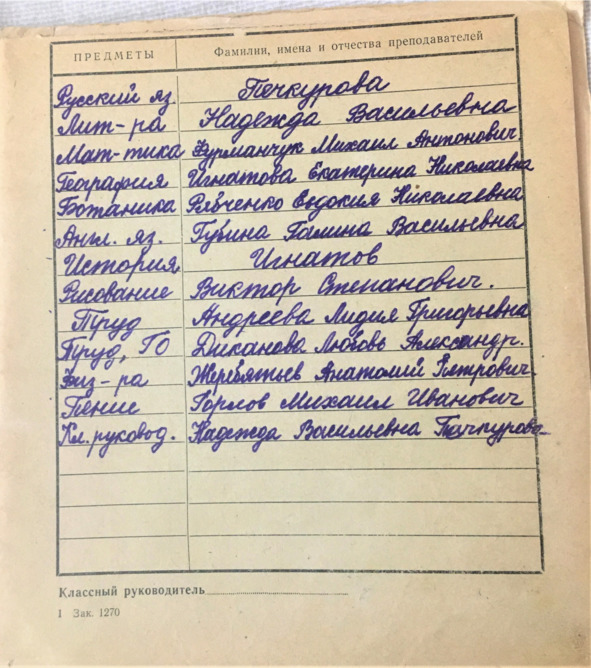 ПРЕДМЕТЫ Фамилии, имена и отчества преподавателей
Русский яз. Печкурова
Лит-ра Надежда Васильевна
Мат-тика Фурманчук Михаил Антонович.
География Игнатова Екатерина Николаевна
Ботаника Рябченко Евдокия Николаевна
Англ. яз. Губина Галина Васильевна
История Игнатов
Рисование Виктор Степанович.
Труд Андреева Лидия Григорьевна
Труд, ГО Диканова Любовь Александр.
Физ-ра Жеребятьев Анатолий Петрович.
Пение Горлов Михаил Иванович
Кл. руковод. Надежда Васильевна Печкурова
Классный руководитель
1 Зак. 1270